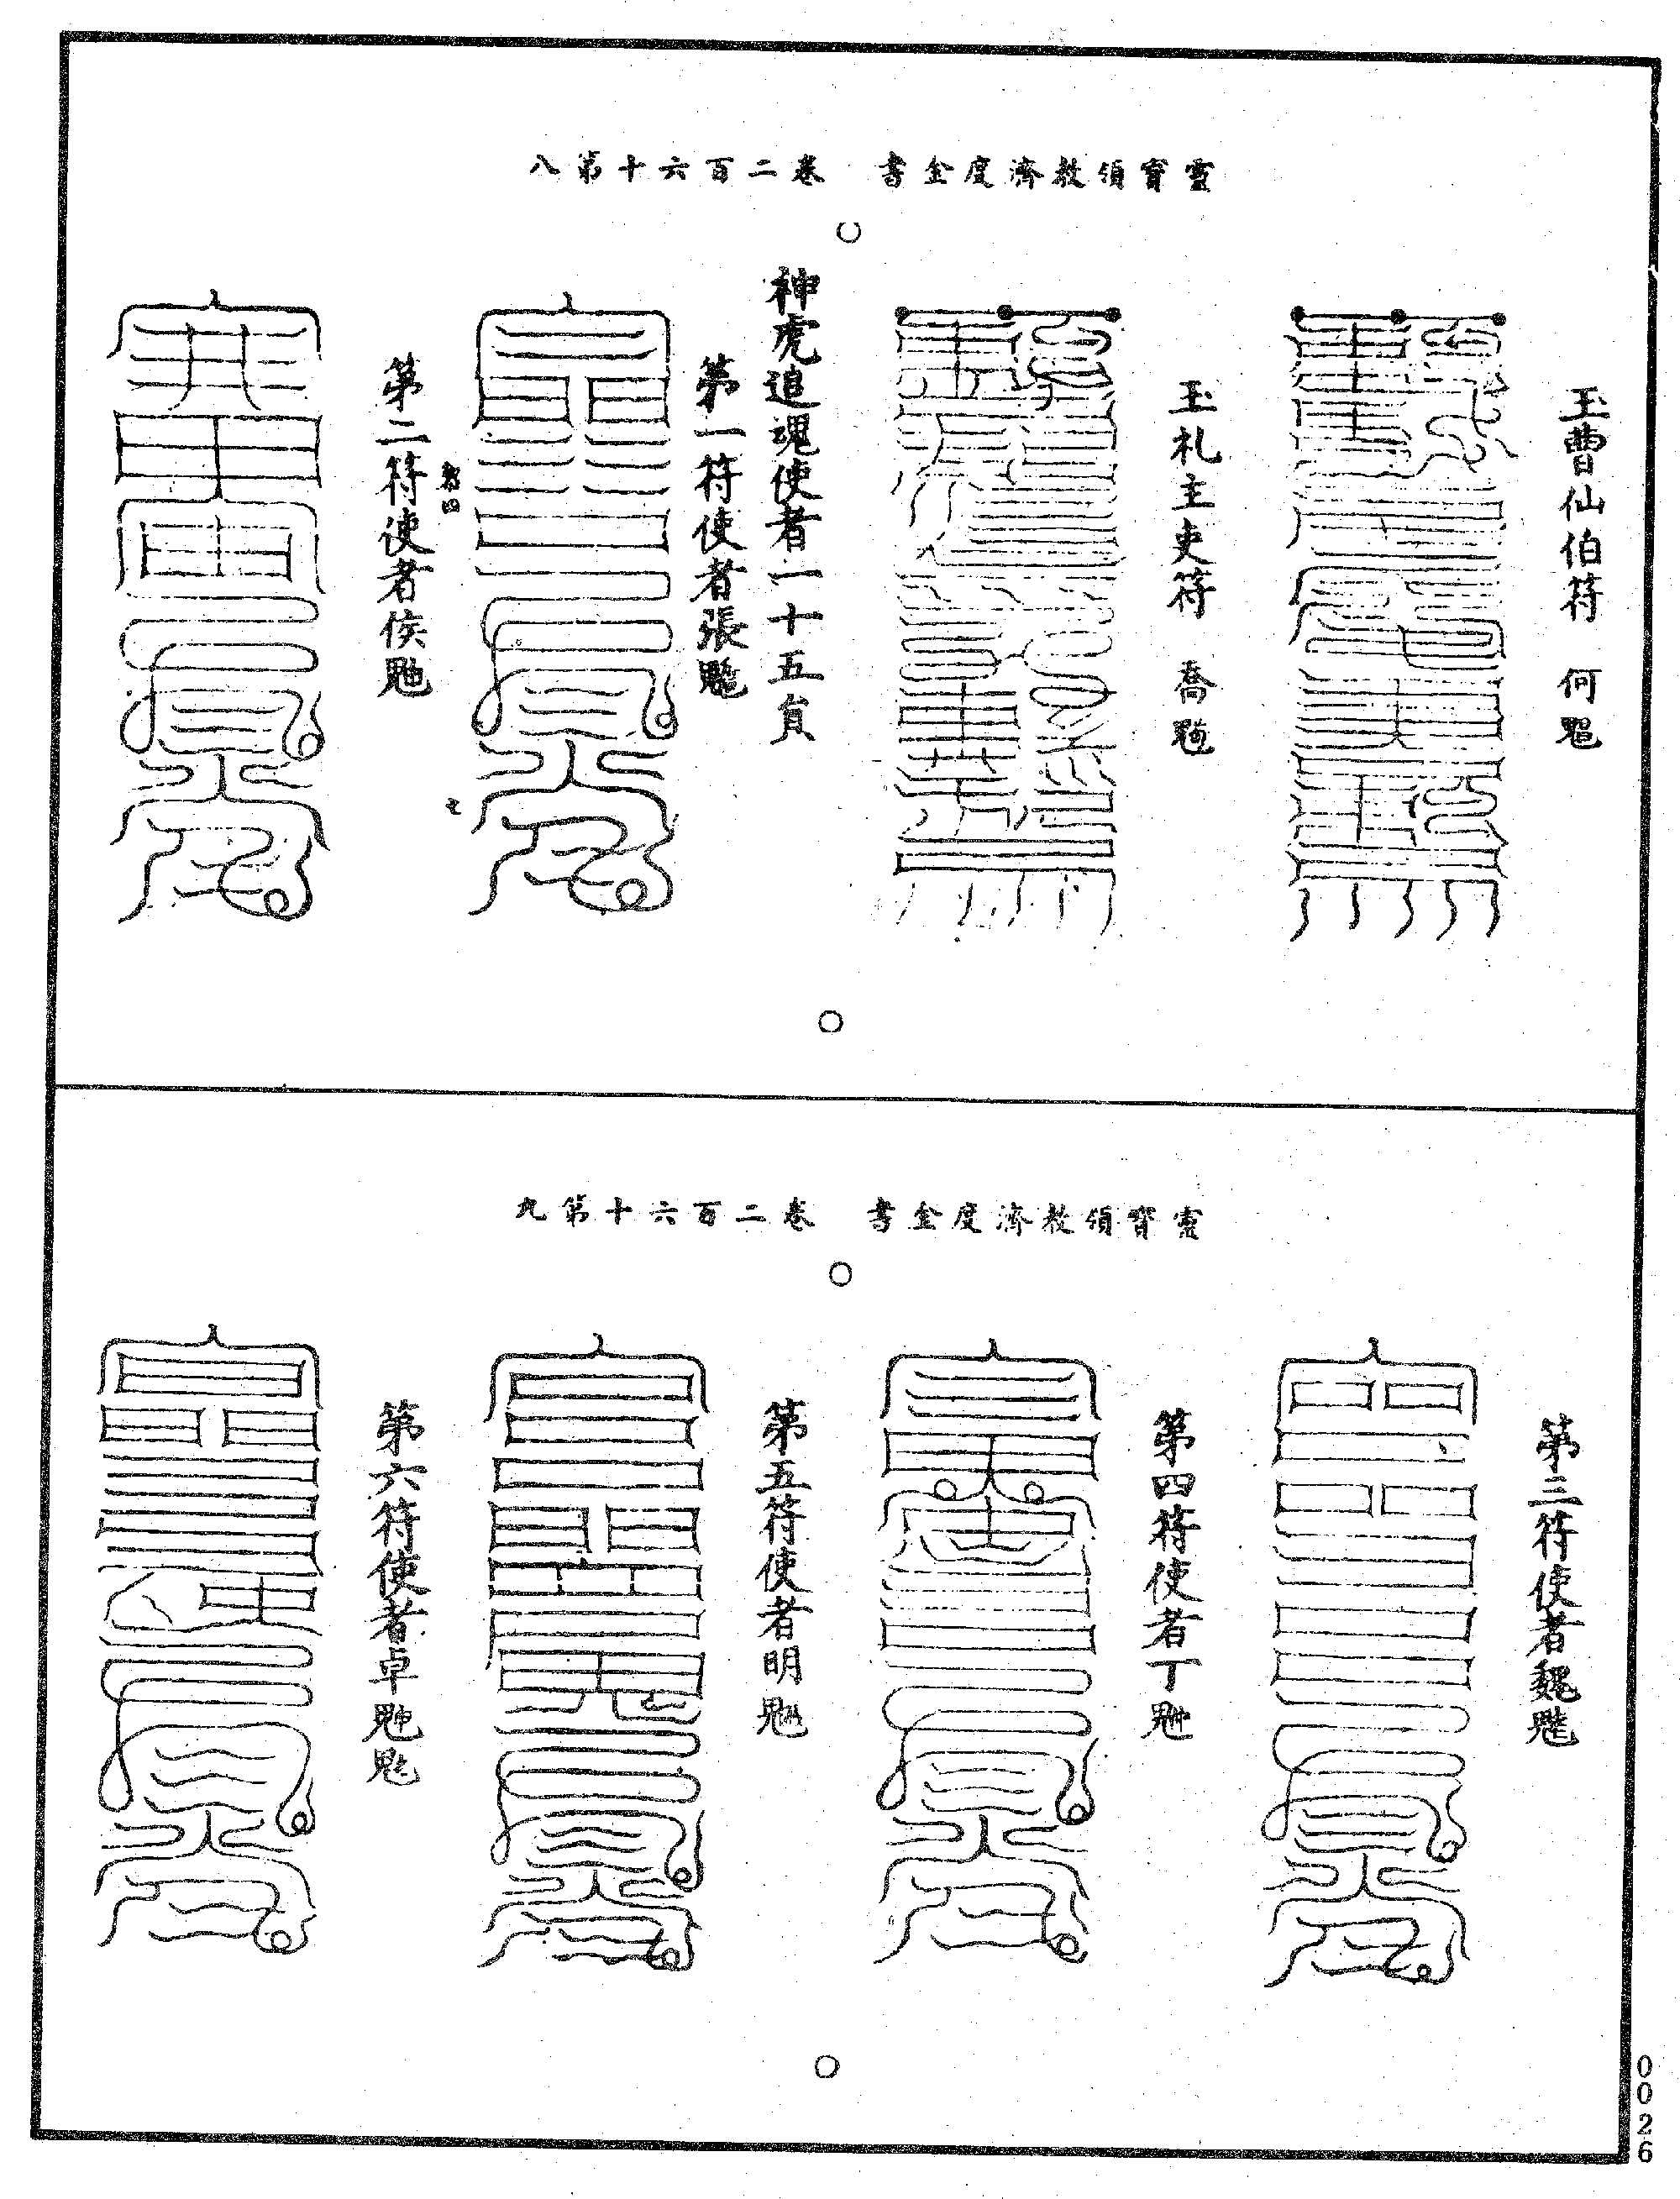 靈寶領教濟度金書 卷二百六十第八
玉曹仙伯符 何䰢
玉札主吏符 喬
神虎追魂使者一十五員
第一符使者張
第二符使者侯
靈寶領教濟度金書 卷二百六十第九
第三符使者魏
第四符使者丁
第五符使者明
第六符使者卓
0026